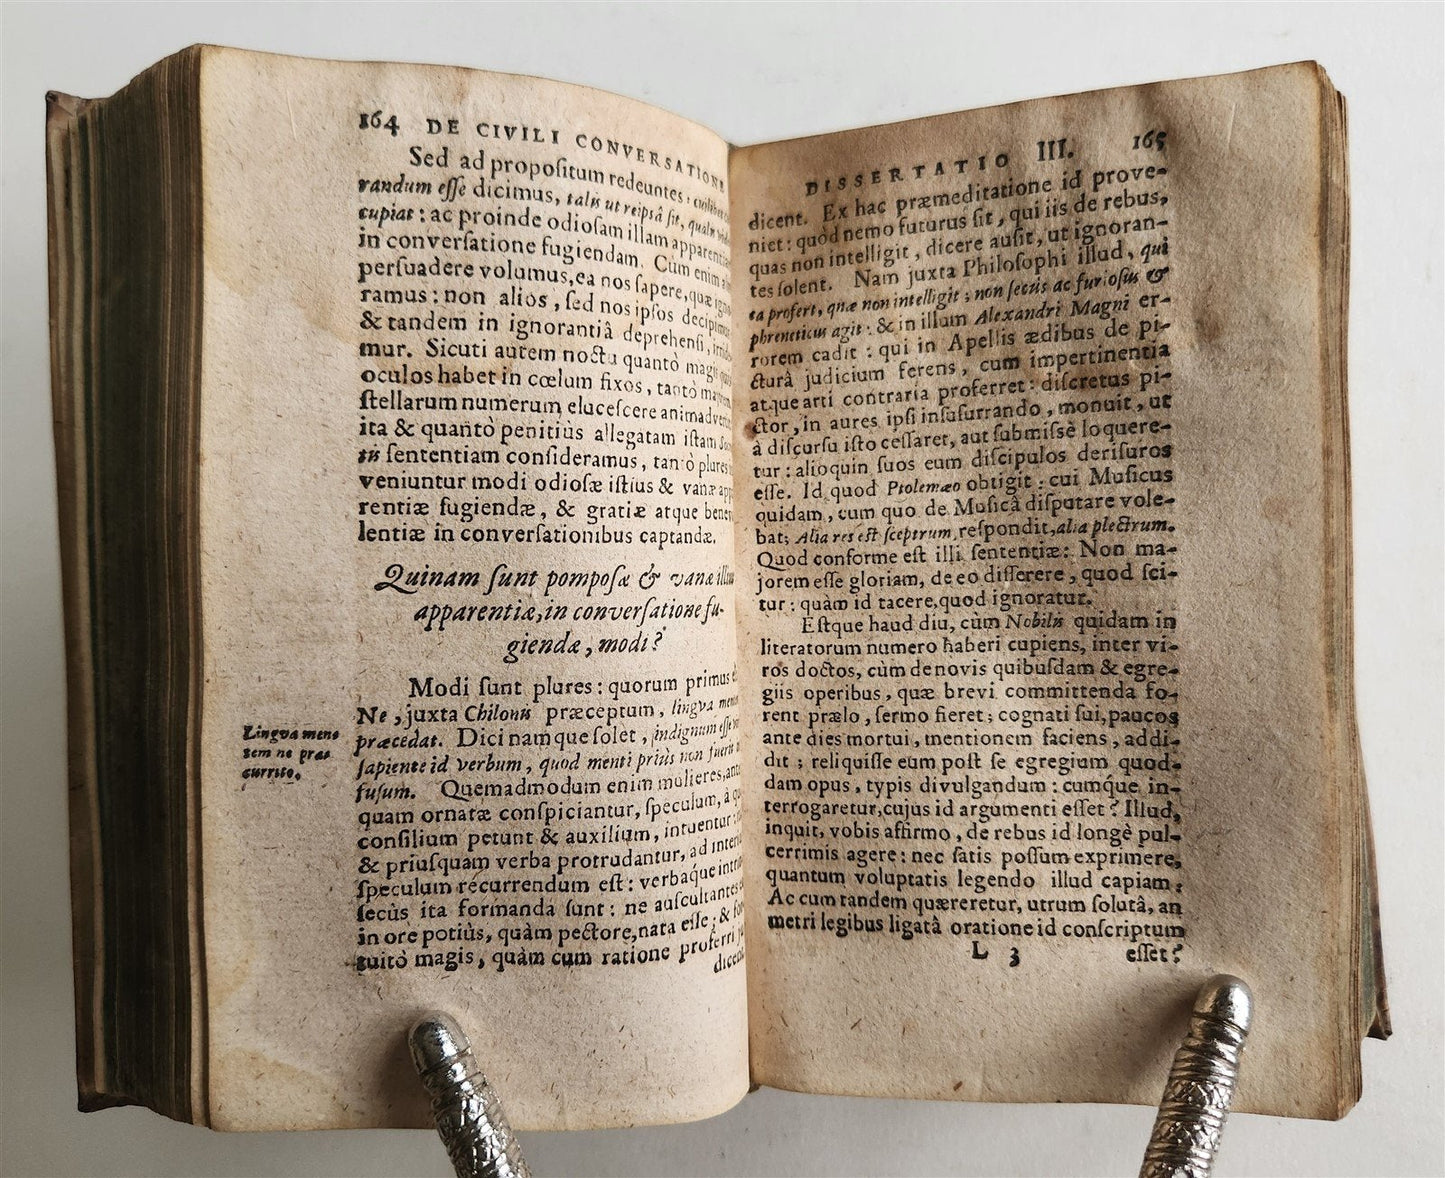 164 DE CIVILI CONVERSATIONE
Sed ad propoſitum redeuntes,
randum eſſe dicimus, talis ut reipsâ ſit, qualis
cupiat: ac proinde odioſam illam apparentiam
in converſatione fugiendam. Cùm enim
perſuadere volumus, ea nos ſapere, quæ
ramus: non alios, ſed nos ipſos decipimus
& tandem in ignorantiâ deprehenſi,
mur. Sicuti autem noctu quantò magis
oculos habet in cœlum fixos, tantò
ſtellarum numerum eluceſcere
ita & quantò penitiùs allegatam iſtam
tis ſententiam conſideramus, tantò plures
veniuntur modi odioſæ iſtius & vanæ
rentiæ fugiendæ, & gratiæ atque
lentiæ in converſationibus captandæ.
Quinam ſunt pompoſæ & vanæ
apparentiæ, in converſatione fu-
giendæ, modi?
Modi ſunt plures: quorum primus
Ne, juxta Chilonis præceptum, lingva
præcedat. Dici namque ſolet, indignum eſſe
ſapiente id verbum, quod menti priùs non fuerit
fuſum. Quemadmodum enim mulieres,
quam ornatæ conſpiciantur, ſpeculum, à
conſilium petunt & auxilium, intuentur:
& priuſquam verba protrudantur, ad
ſpeculum recurrendum eſt: verbaque
ſecùs ita formanda ſunt: ne auſcultantes
in ore potiùs, quàm pectore, nata eſſe; &
tuitò magis, quàm cum ratione proferri
Lingva men-
tem ne præ-
currito.
DISSERTATIO III. 165
dicent. Ex hac præmeditatione id prove-
niet: quòd nemo futurus ſit, qui iis de rebus,
quas non intelligit, dicere auſit, ut ignoran-
tes ſolent. Nam juxta Philoſophi illud, qui
ea profert, quæ non intelligit; non ſecùs ac furioſus &
phreneticus agit: & in illum Alexandri Magni er-
rorem cadit: qui in Apellis ædibus de pi-
cturâ judicium ferens, cum impertinentia
atque arti contraria proferret: diſcretus pi-
ctor, in aures ipſi inſuſurrando, monuit, ut
à diſcurſu iſto ceſſaret, aut ſubmiſsè loquere-
tur: alioquin ſuos eum diſcipulos deriſuros
eſſe. Id quod Ptolemæo obtigit: cui Muſicus
quidam, cum quo de Muſicâ diſputare vole-
bat; Alia res eſt ſceptrum, reſpondit, alia plectrum.
Quod conforme eſt illi ſententiæ: Non ma-
jorem eſſe gloriam, de eo differere, quod ſci-
tur: quàm id tacere, quod ignoratur.
Eſtque haud diu, cùm Nobilis quidam in
literatorum numero haberi cupiens, inter vi-
ros doctos, cùm de novis quibuſdam & egre-
giis operibus, quæ brevi committenda fo-
rent prælo, ſermo fieret; cognati ſui, paucos
ante dies mortui, mentionem faciens, addi-
dit; reliquiſſe eum poſt ſe egregium quod-
dam opus, typis divulgandum: cumque in-
terrogaretur, cujus id argumenti eſſet? Illud,
inquit, vobis affirmo, de rebus id longè pul-
cerrimis agere: nec ſatis poſſum exprimere,
quantum voluptatis legendo illud capiam.
Ac cum tandem quæreretur, utrum ſolutâ, an
metri legibus ligatâ oratione id conſcriptum
L 3 eſſet?